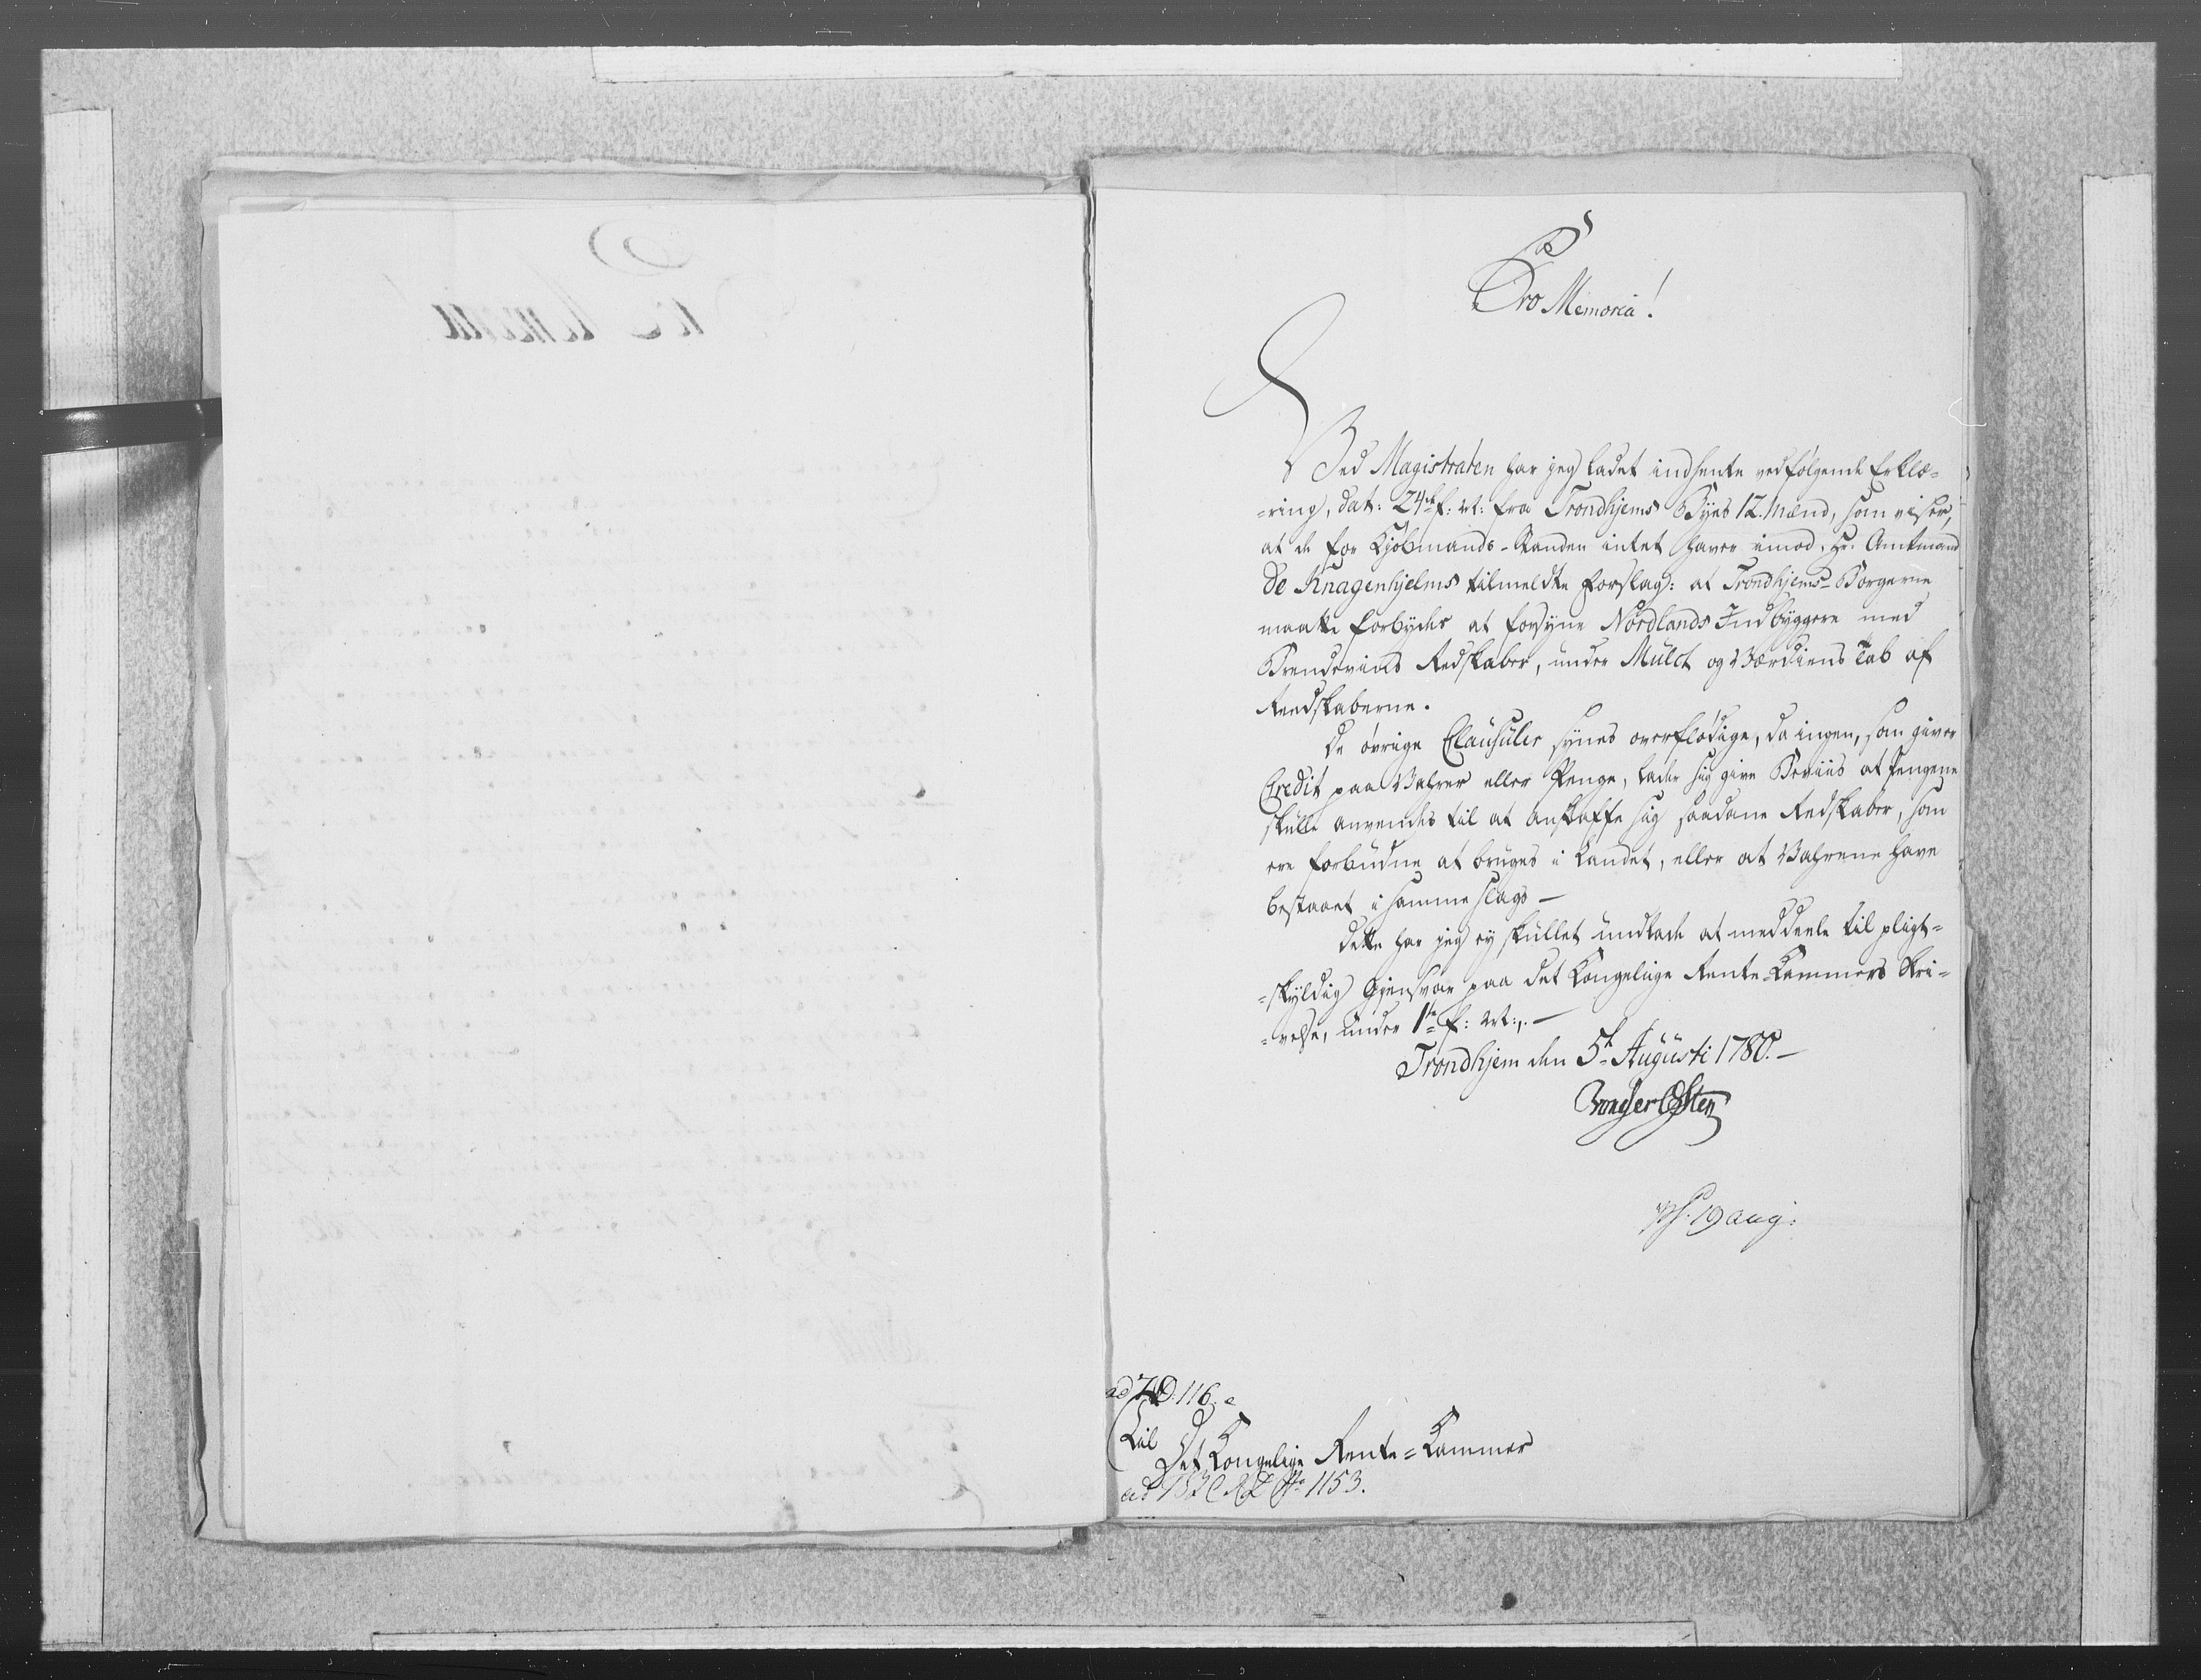 Pro Memoria!
Ved Magistraten har jeg ladet indhente vedfølgende Erklæ-
-ring, dat: 24de f: M: fra Trondhjems Byes 12. Mænd, som viser,
at de for Kjøbmands-Standen intet haver imod, Hr. Amtmand
de Knagenhjelms tilmeldte Forslag: at Trondhjems-Borgerne
maatte forbydes at forsyne Nordlands Indbyggere med
Brendeviins Redskaber, under Mulct og Værdiens Tab af
Reedskaberne.
De øvrige Clausuler synes overflødige, da ingen, som giver
Credit paa Vahrer eller Penge, lader sig give Beviis at Pengene
skulle anvendes til at anskaffe sig saadane Redskaber, som
ere forbudne at bruges i Landet, eller at Vahrene have
bestaaet i samme slags —
Dette har jeg ey skullet undlade at meddeele til pligt-
-skyldig Gjensvar paa det Kongelige Rente-Kammers Skri-
-velse, under 1te f: M:,. —
Trondhjem den 5te Augusti 1780. —
Von der Osten
19 aug:
ad 116.
Til
Det Kongelige Rente=Kammer
ad No 1153.